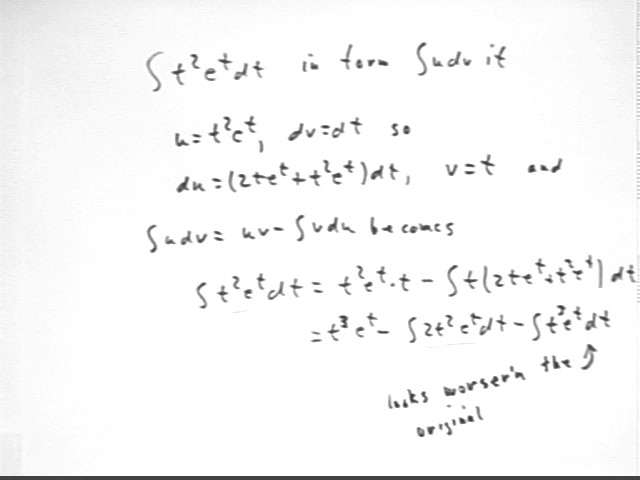 ∫t²eᵗdt in form ∫udv if
u=t²eᵗ, dv=dt so
du=(2teᵗ+t²eᵗ)dt, v=t and
∫udv=uv-∫vdu becomes
∫t²eᵗdt=t²eᵗ·t-∫t(2teᵗ+t²eᵗ)dt
=t³eᵗ-∫2t²eᵗdt-∫t³eᵗdt
looks worser'n the
original